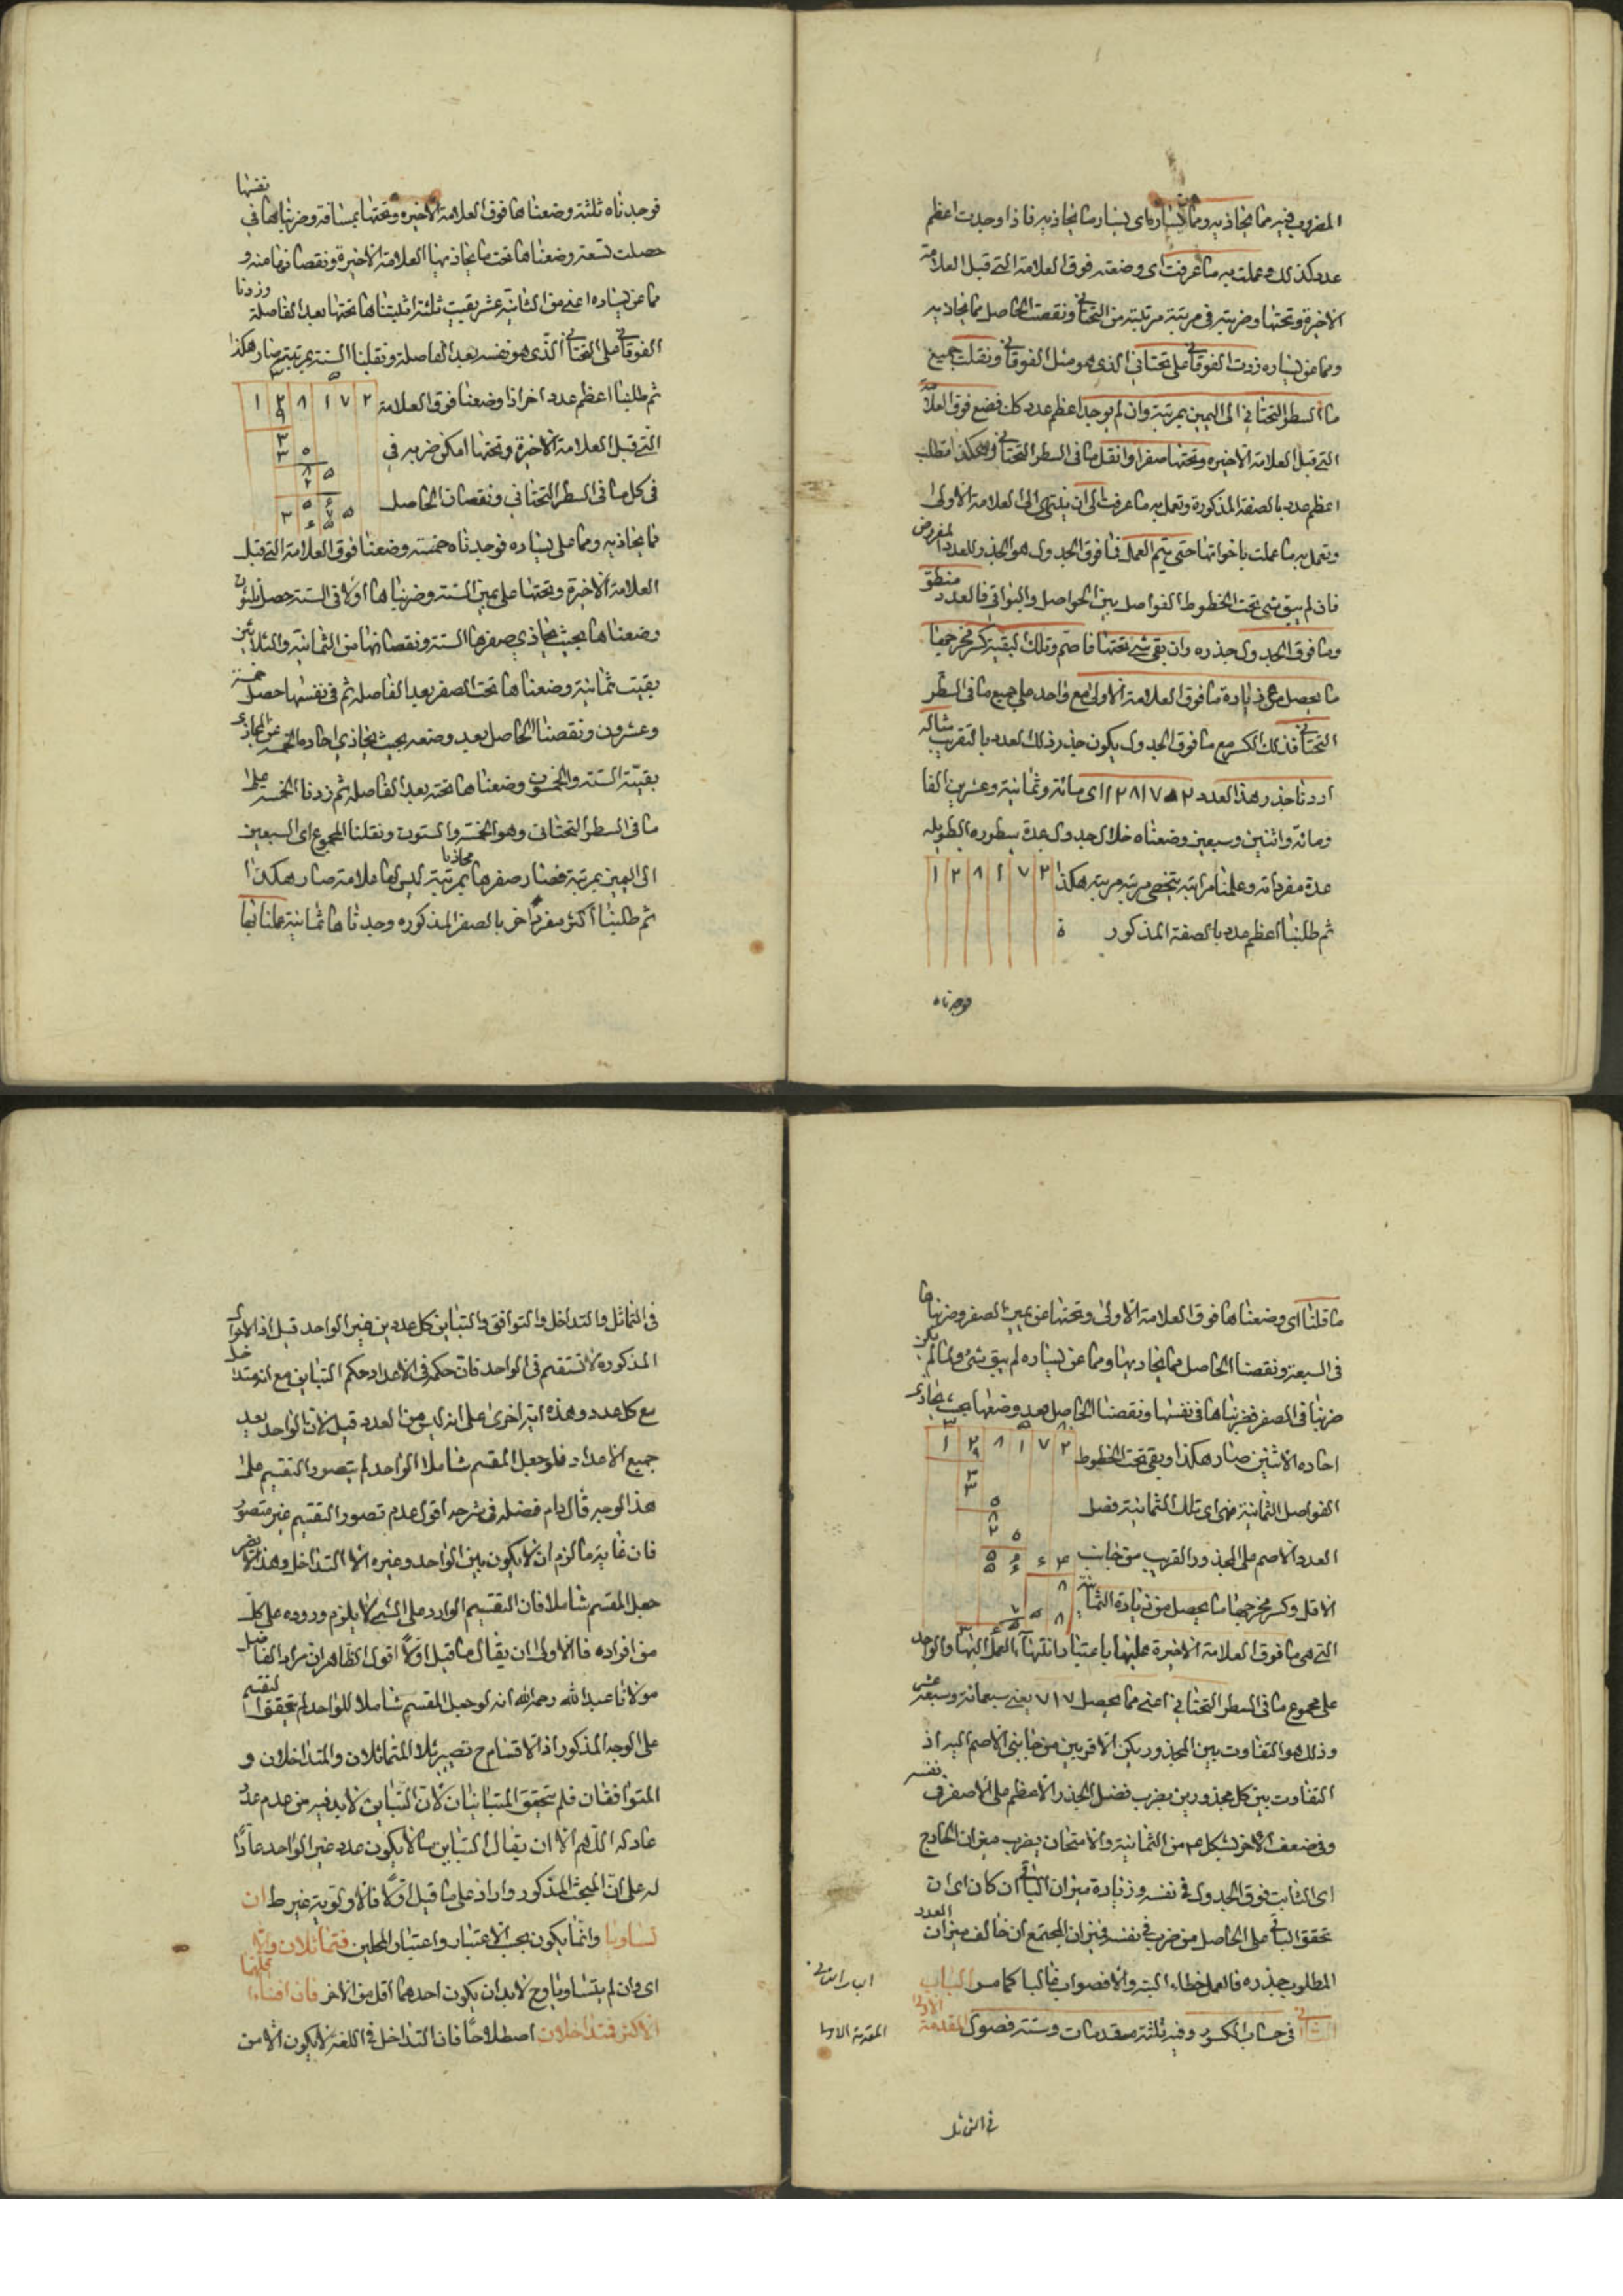 المضروب فيه مما يحاذيه ومما يساره اى يسار ما يحاذيه فاذا وجدت اعظم
عدد كذلك وعملت به ما عرفت اى وضعته فوق العلامة التى قبل العلامة
الاخيرة وتحتها وضربته فى مرتبة مرتبة من التحتانى ونقصت الحاصل مما يحاذيه
ومما عن يساره زدت الفوقانى على تحتانى الذى هو مثل الفوقانى ونقلت جميع
ما السطر التحتانى الى اليمين بمرتبة وان لم يوجد اعظم عدد كك فضع فوق العلامة
التى قبل العلامة الاخيره وتحتها صفرا وانقل ما فى السطر التحتانى وهكذا تطلب
اعظم عدد بالصفة المذكورة وتعمل به ما عرفت الى ان ينتهى الى العلامة الاولى
وتعمل به ما عملت باخواتها حتى يتم العمل فما فوق الجدول هو الجذر للعدد المفروض
فان لم يبق شى تحت الخطوط الفواصل بين الحواصل والبواقى فالعدد منطق
وما فوق الجدول جذره وان بقى شى تحتها فاصم وتلك البقية كسر مخرجها
ما يحصل من زيادة ما فوق العلامة الاولى مع واحد على جميع ما فى السطر
التحتانى فذلك الكسر مع ما فوق الجدول يكون جذر ذلك العدد بالتقريب مثاله
اردنا جذر هذا العدد ١٢٨١٧٢ اى مائة وثمانية وعشرين الفا
ومائة واثنين وسبعين وضعناه خلال جدول عدة سطوره الطويله
عدة مفرداته وعلمنا مراتبه بتخطى مرتبة مرتبة هكذا
١ ٢ ٨ ١ ٧ ٢
ثم طلبنا اعظم عدد بالصفة المذكور ة
فوجدناه
فوجدناه ثلثة وضعناها فوق العلامة الاخيره وتحتها بمسافة وضربناها فى نفسها
حصلت تسعة وضعناها تحت ما يحاذيها العلامة الاخيرة ونقصناها منه و
مما عن يساره اعنى من الثانية عشر بقيت ثلثة اثبتناها تحتها بعد الفاصلة وزدنا
الفوقانى على التحتانى الذى هو نفسه بعد الفاصلة ونقلنا الستة بمرتبة صار هكذا
ثم طلبنا اعظم عدد اخر اذا وضعنا فوق العلامة
١ ٢ ٨ ١ ٧ ٢
التى قبل العلامة الاخيرة وتحتها امكن ضربه فى
فى كل ما فى السطر التحتانى ونقصان الحاصل
مما يحاذيه ومما على يساره فوجدناه خمسة وضعنا فوق العلامة التى قبل
العلامة الاخيرة وتحتها على يمين الستة وضربناها اولا فى الستة حصل ثلثون
وضعناها بحيث يحاذى صفرها الستة ونقصناها من الثمانية والثلاثين
بقيت ثمانية وضعناها تحت الصفر بعد الفاصلة ثم فى نفسها حصل خمسة
وعشرون ونقصنا الحاصل بعد وضعه بحيث يحاذى احاده الخمسة عن المحاذى
بقية الستة والخمسون وضعناها تحته بعد الفاصلة ثم زدنا الخمسة على
ما فى السطر التحتانى وهو الخمسة والستون ونقلنا المجموع اى السبعين
الى اليمين بمرتبة فصار صفرها محاذيا بمرتبة ليس لها علامة صار هكذا
ثم طلبنا اكثر مفرد اخر بالصفة المذكوره وجدناها ثمانية عملنا بها
ما قلنا اى وضعناها فوق العلامة الاولى وتحتها عن يمين الصفر وضربناها
فى السبعة ونقصنا الحاصل مما يحاذيها ومما عن يساره لم يبق شئ ولما لم يكن
ضربنا فى الصفر فضربناها فى نفسها ونقصنا الحاصل بعد وضعها بحيث يحاذى
احاده الاثنين صار هكذا وبقى تحت الخطوط
١ ٢ ٨ ١ ٧ ٢
الفواصل الثمانية فهى اى تلك الثمانية فضل
العدد الاصم على المجذور القريب من جانب
الاقل وكسر مخرجها ما يحصل من زيادة الثمانية
التى هى ما فوق العلامة الاخيرة عليها باعتبار انتهاء العمل اليها والواحد
على مجموع ما فى السطر التحتانى اعنى مما يحصل ٧١٧ يعنى سبعمائة وسبعة عشر
وذلك هو التفاوت بين المجذورين الاقربين من جانبى الاصم اليه اذ
التفاوت بين كل مجذورين بضرب فضل الجذر الاعظم على الاصغر فى نفسه
وفى ضعف الاخر لشكل من الثمانية والامتحان بضرب ميزان الخارج
اى الثابت فوق الجدول فى نفسه وزيادة ميزان الباقى ان كان اى ان
تحقق الباقى على الحاصل من ضربه فى نفسه فميزان المجتمع ان خالف ميزان العدد
المطلوب جذره فالعمل خطاء البتة والا فصواب غالبا كما مر الباب
الثانى فى حساب الكسور وفيه ثلثة مقدمات وستة فصول المقدمة الاولى
الباب الثانى
المقدمة الاولى
فى التماثل
فى التماثل والتداخل والتوافق والتباين كل عددين غير الواحد قيل اذ الاحوال
المذكورة لا تستقيم فى الواحد فان حكمه فى الاعداد حكم التباين مع انه متداخل
مع كل عدد وهذه اية اخرى على انه ليس من العدد قيل لان الواحد يعد
جميع الاعداد فلو جعل المقسم شاملا الواحد لم يتصور التقسيم على
هذا الوجه قال دام فضله فى شرحه اقول عدم تصور التقسيم غير متصور
فان غاية ما لزم ان لا يكون بين الواحد وغيره الا التداخل وهذا لا يضر
جعل المقسم شاملا فان التقسيم الوارد على الشئ لا يلزم وروده على كل
من افراده فالاولى ان يقال ما قيل اولا اقول الظاهر ان مراد الفاضل
مولانا عبد الله رحمه الله انه لو جعل المقسم شاملا للواحد لم يتحقق التقسيم
على الوجه المذكور اذ الاقسام ح تصير ثلاثا المتماثلان والمتداخلان و
المتوافقان فلم يتحقق المتباينان لان التباين لا بد فيه من عدم عدد
عاد له اللهم الا ان يقال التباين ما لا يكون عدد غير الواحد عادا
له على ان المبحث المذكور وارد على ما قيل اولا فالاولوية غير ط ان
تساويا وانما يكون بحسب الاعتبار واعتبار المحلين فتماثلان والا
اى وان لم يتساويا وح لابد ان يكون احدهما اقل من الاخر فان افنى اقلهما
الاكثر فتداخلان اصطلاحا فان التداخل فى اللغة لا يكون الا من